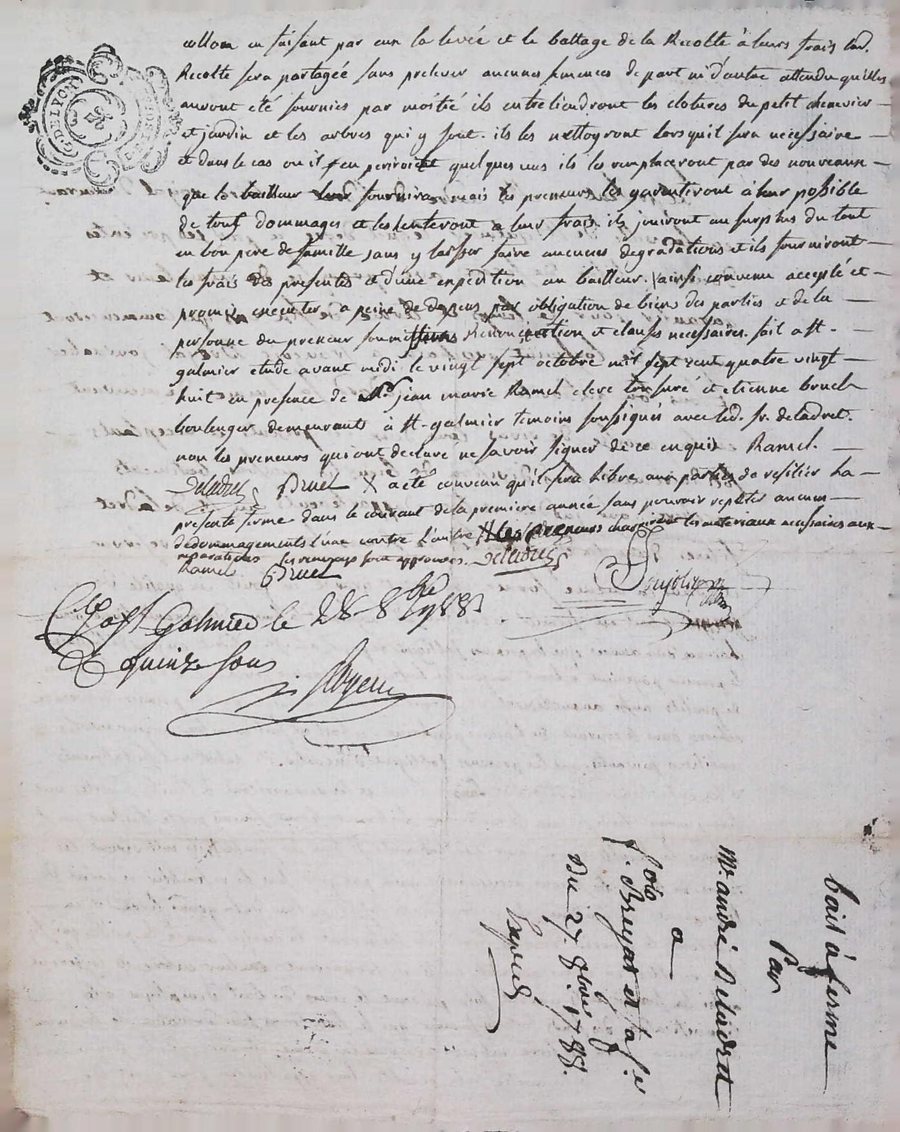 DE LYON
colloin en faisant par eux la levée et le battage de la Recolte à leurs frais lad.
Recolte sera partagée sans prelever aucunes semences de part ni d'autre attendu qu'elles
auront été fournies par moitié ils entretiendront les clotures du petit chenevier
et jardin et les arbres qui y sont. ils les nettoyront lorsqu'il sera necessaire
et dans le cas ou il en periroit quelques uns ils les remplaceront par des nouveaux
que le bailleur fournira mais les preneurs les garantiront à leur possible
de tous dommages et les enteront a leur frais. ils jouiront au surplus du tout
en bon pere de famille sans y laisser faire aucunes degradations et ils fourniront
les frais des presentes et d'une expedition au bailleur. ainsi convenu accepté et
promis executer a peine de depens par obligation de biens des parties et de la
personne du preneur soumissions Renonciation et clauses necessaires. fait a st.
galmier etude avant midi le vingt sept octobre mil sept cent quatre vingt
huit en presence de Mr. jean marie Ramel clerc tonsuré et etienne bruel
boulenger demeurants à st. galmier temoins soussignes avec led. sr. deladret
non les preneurs qui ont declaré ne savoir signer de ce enquis Ramel
Deladret Bruel X a été convenu qu'il sera libre aux parties de resilier la
presente ferme dans le courant de la premiere année sans pouvoir repeter aucuns
dedommagements l'une contre l'autre # les preneurs charieront les materiaux necessaires aux
reparations les renvoys sont approuves. Deladret
Ramel Bruel
Clé a St Galmier le 28 8bre 1788
R quinze sous
bail à ferme
Par
Mr. andré Deladret
a
Bruyas et sa fe
Du 27. 8bre 1788.